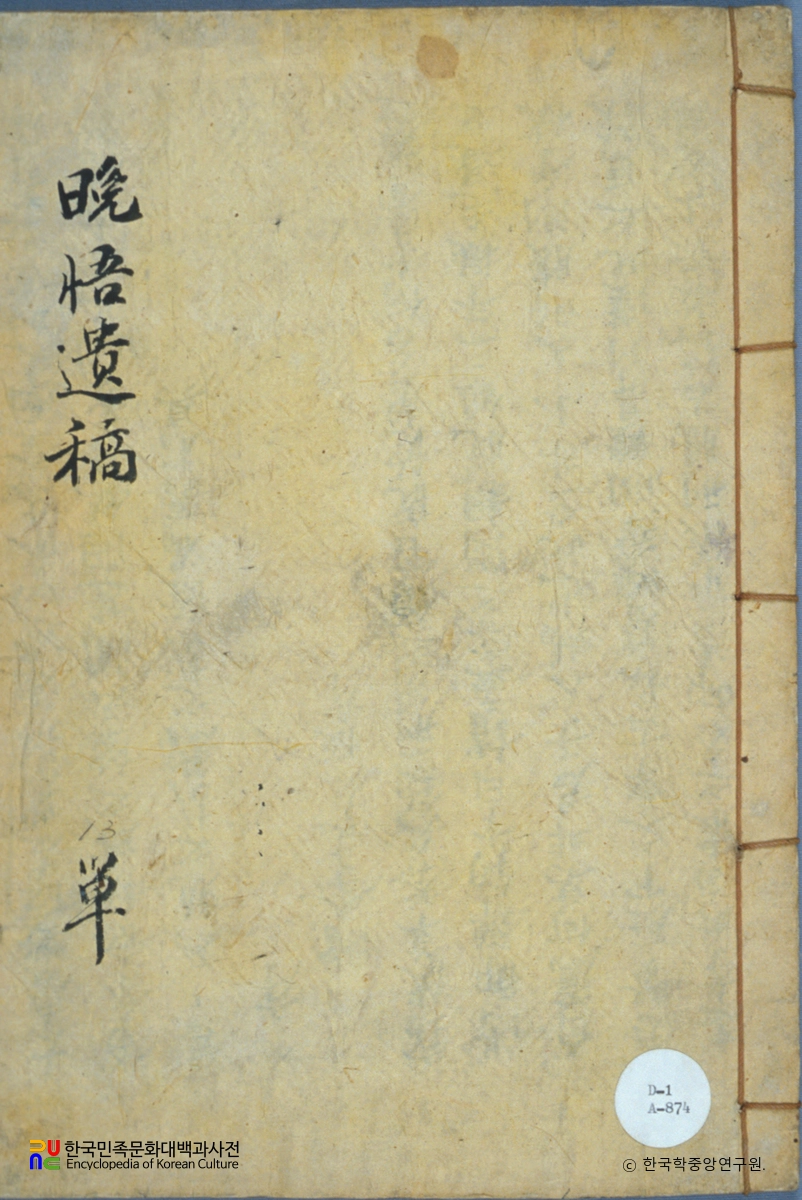 晩悟遺稿
13
単
D-1
A-874
한국민족문화대백과사전
Encyclopedia of Korean Culture
ⓒ 한국학중앙연구원.